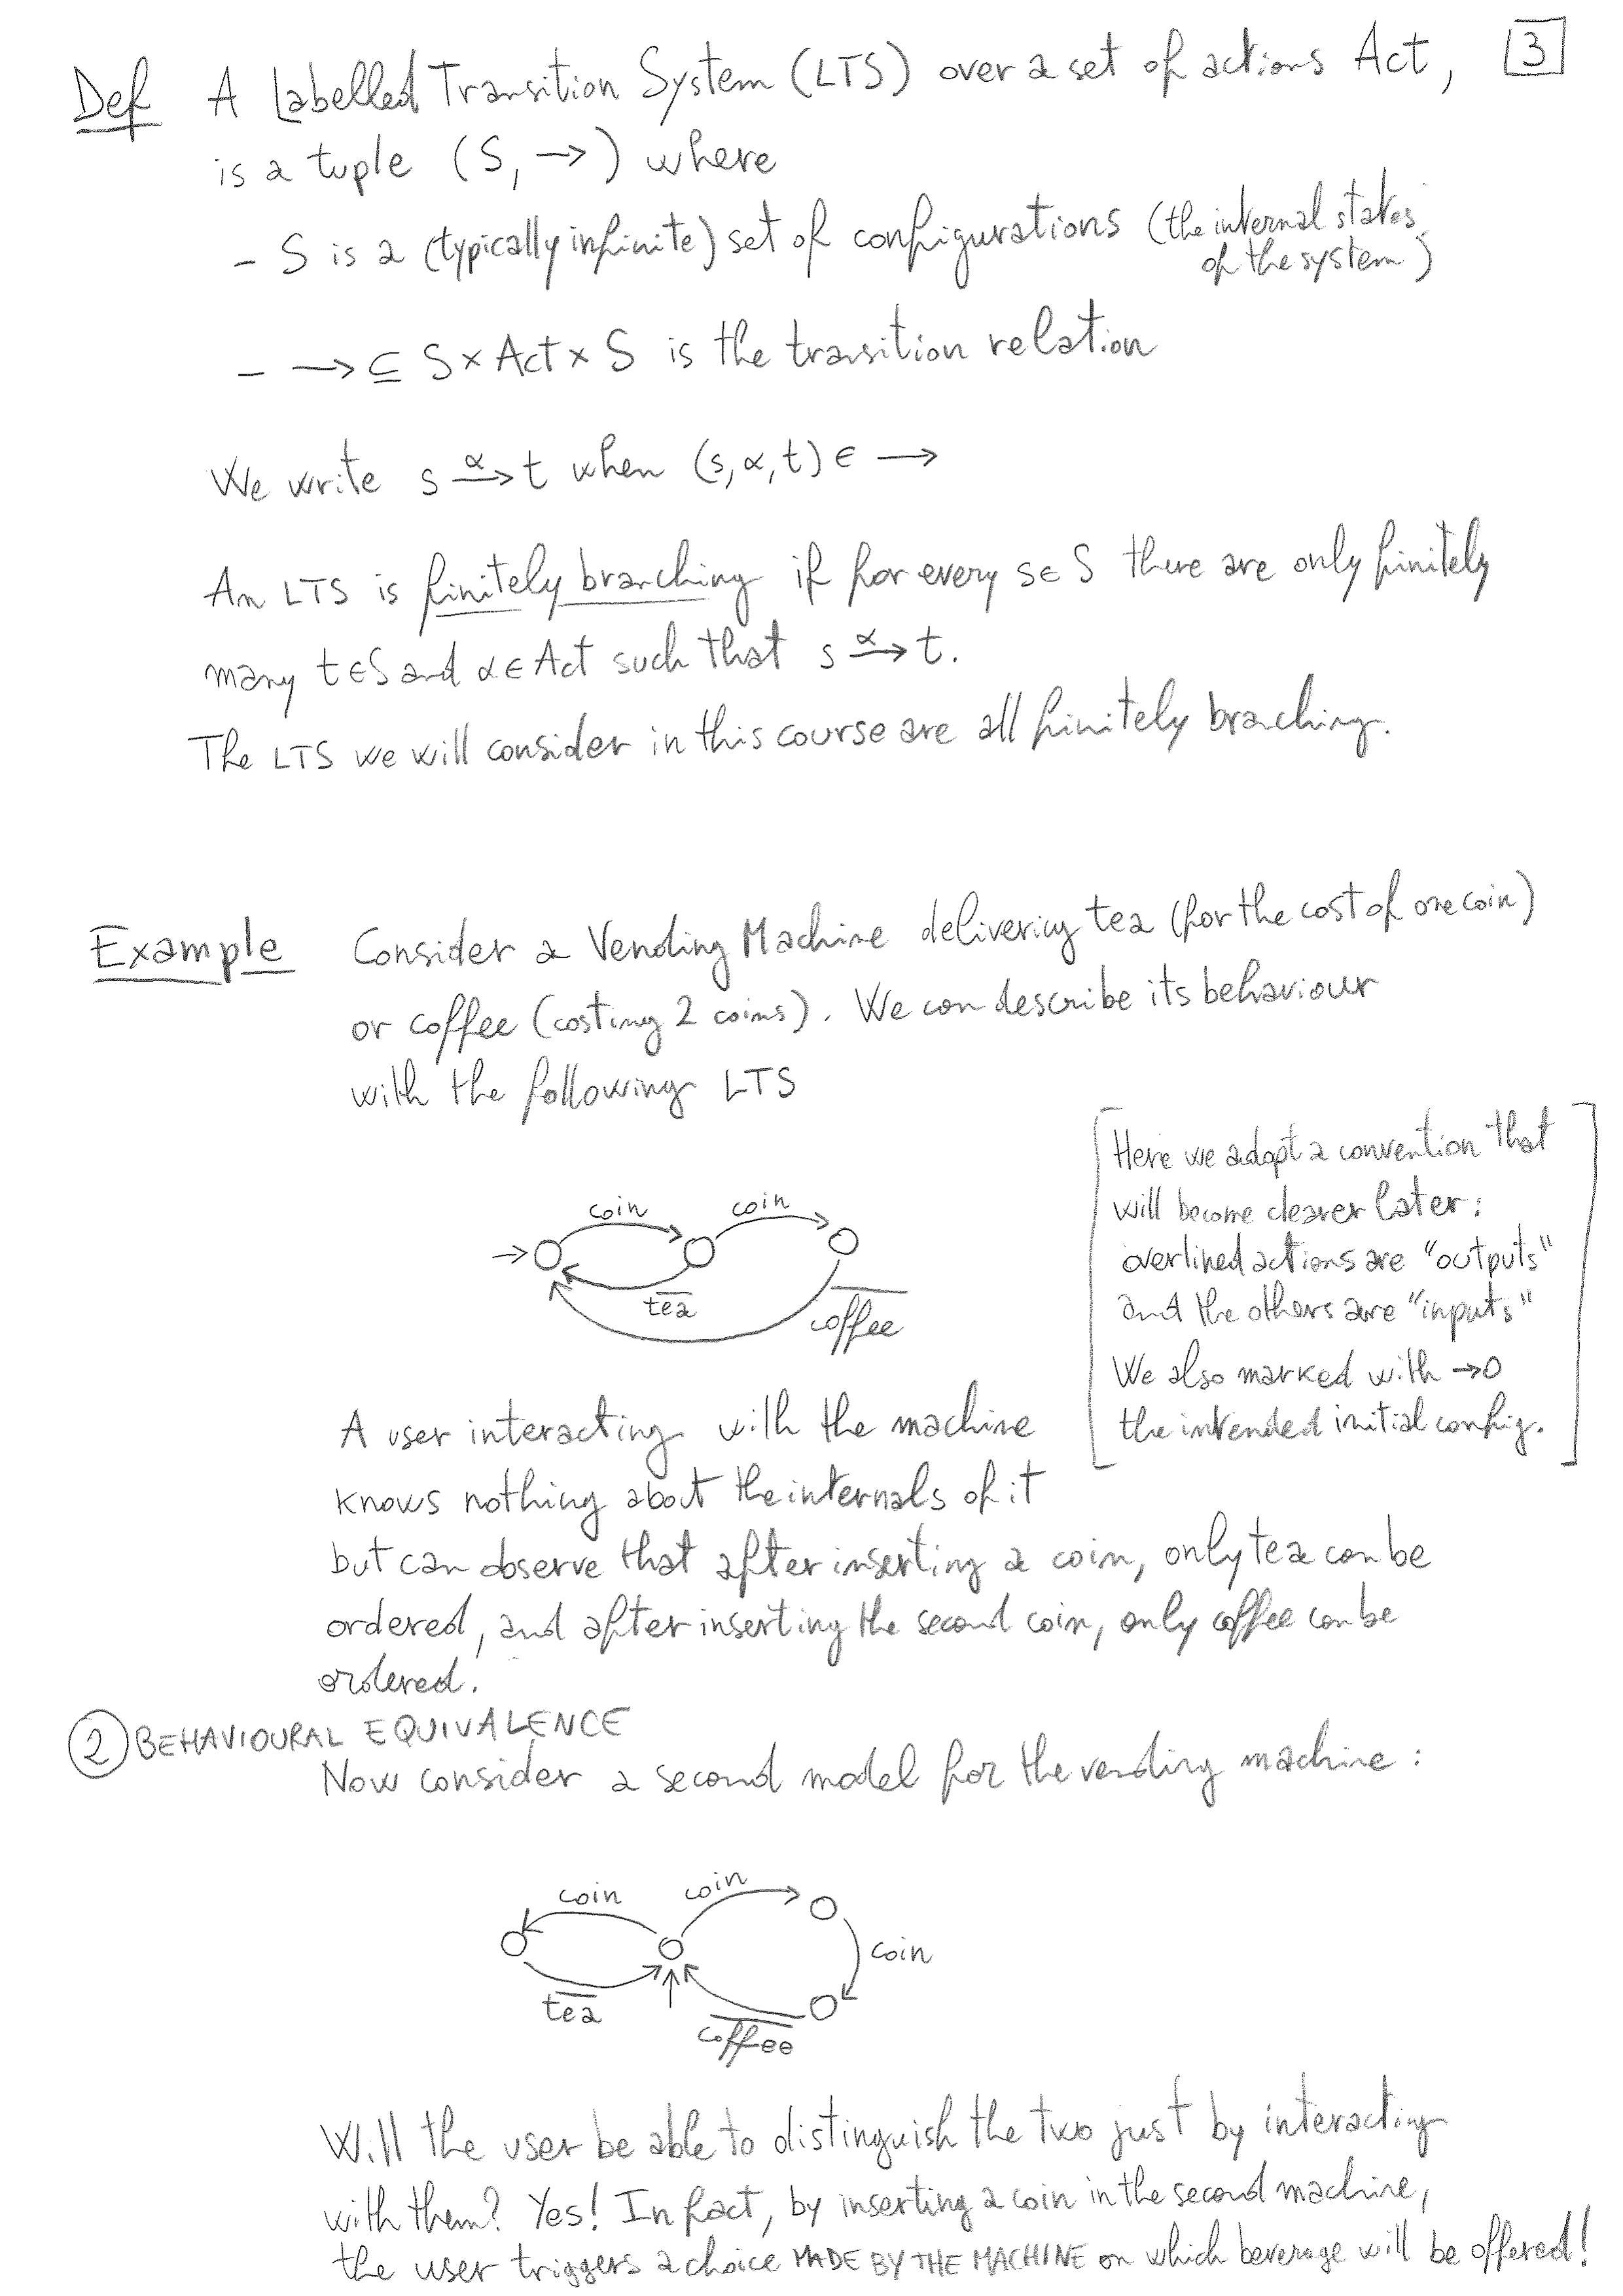 Def A Labelled Transition System (LTS) over a set of actions Act, 3
is a tuple (S, →) where
– S is a (typically infinite) set of configurations (the internal states
of the system)
– → ⊆ S × Act × S is the transition relation
We write s –α→ t when (s, α, t) ∈ →
An LTS is finitely branching if for every s ∈ S there are only finitely
many t ∈ S and α ∈ Act such that s –α→ t.
The LTS we will consider in this course are all finitely branching.
Example Consider a Vending Machine delivering tea (for the cost of one coin)
or coffee (costing 2 coins). We can describe its behaviour
with the following LTS
Here we adopt a convention that
will become clearer later:
overlined actions are "outputs"
and the others are "inputs"
We also marked with →O
the intended initial config.
coin coin
t̅e̅a̅
c̅o̅f̅f̅e̅e̅
A user interacting with the machine
knows nothing about the internals of it
but can observe that after inserting a coin, only tea can be
ordered, and after inserting the second coin, only coffee can be
ordered.
2 BEHAVIOURAL EQUIVALENCE
Now consider a second model for the vending machine:
coin coin
coin
t̅e̅a̅
c̅o̅f̅f̅e̅e̅
Will the user be able to distinguish the two just by interacting
with them? Yes! In fact, by inserting a coin in the second machine,
the user triggers a choice MADE BY THE MACHINE on which beverage will be offered!